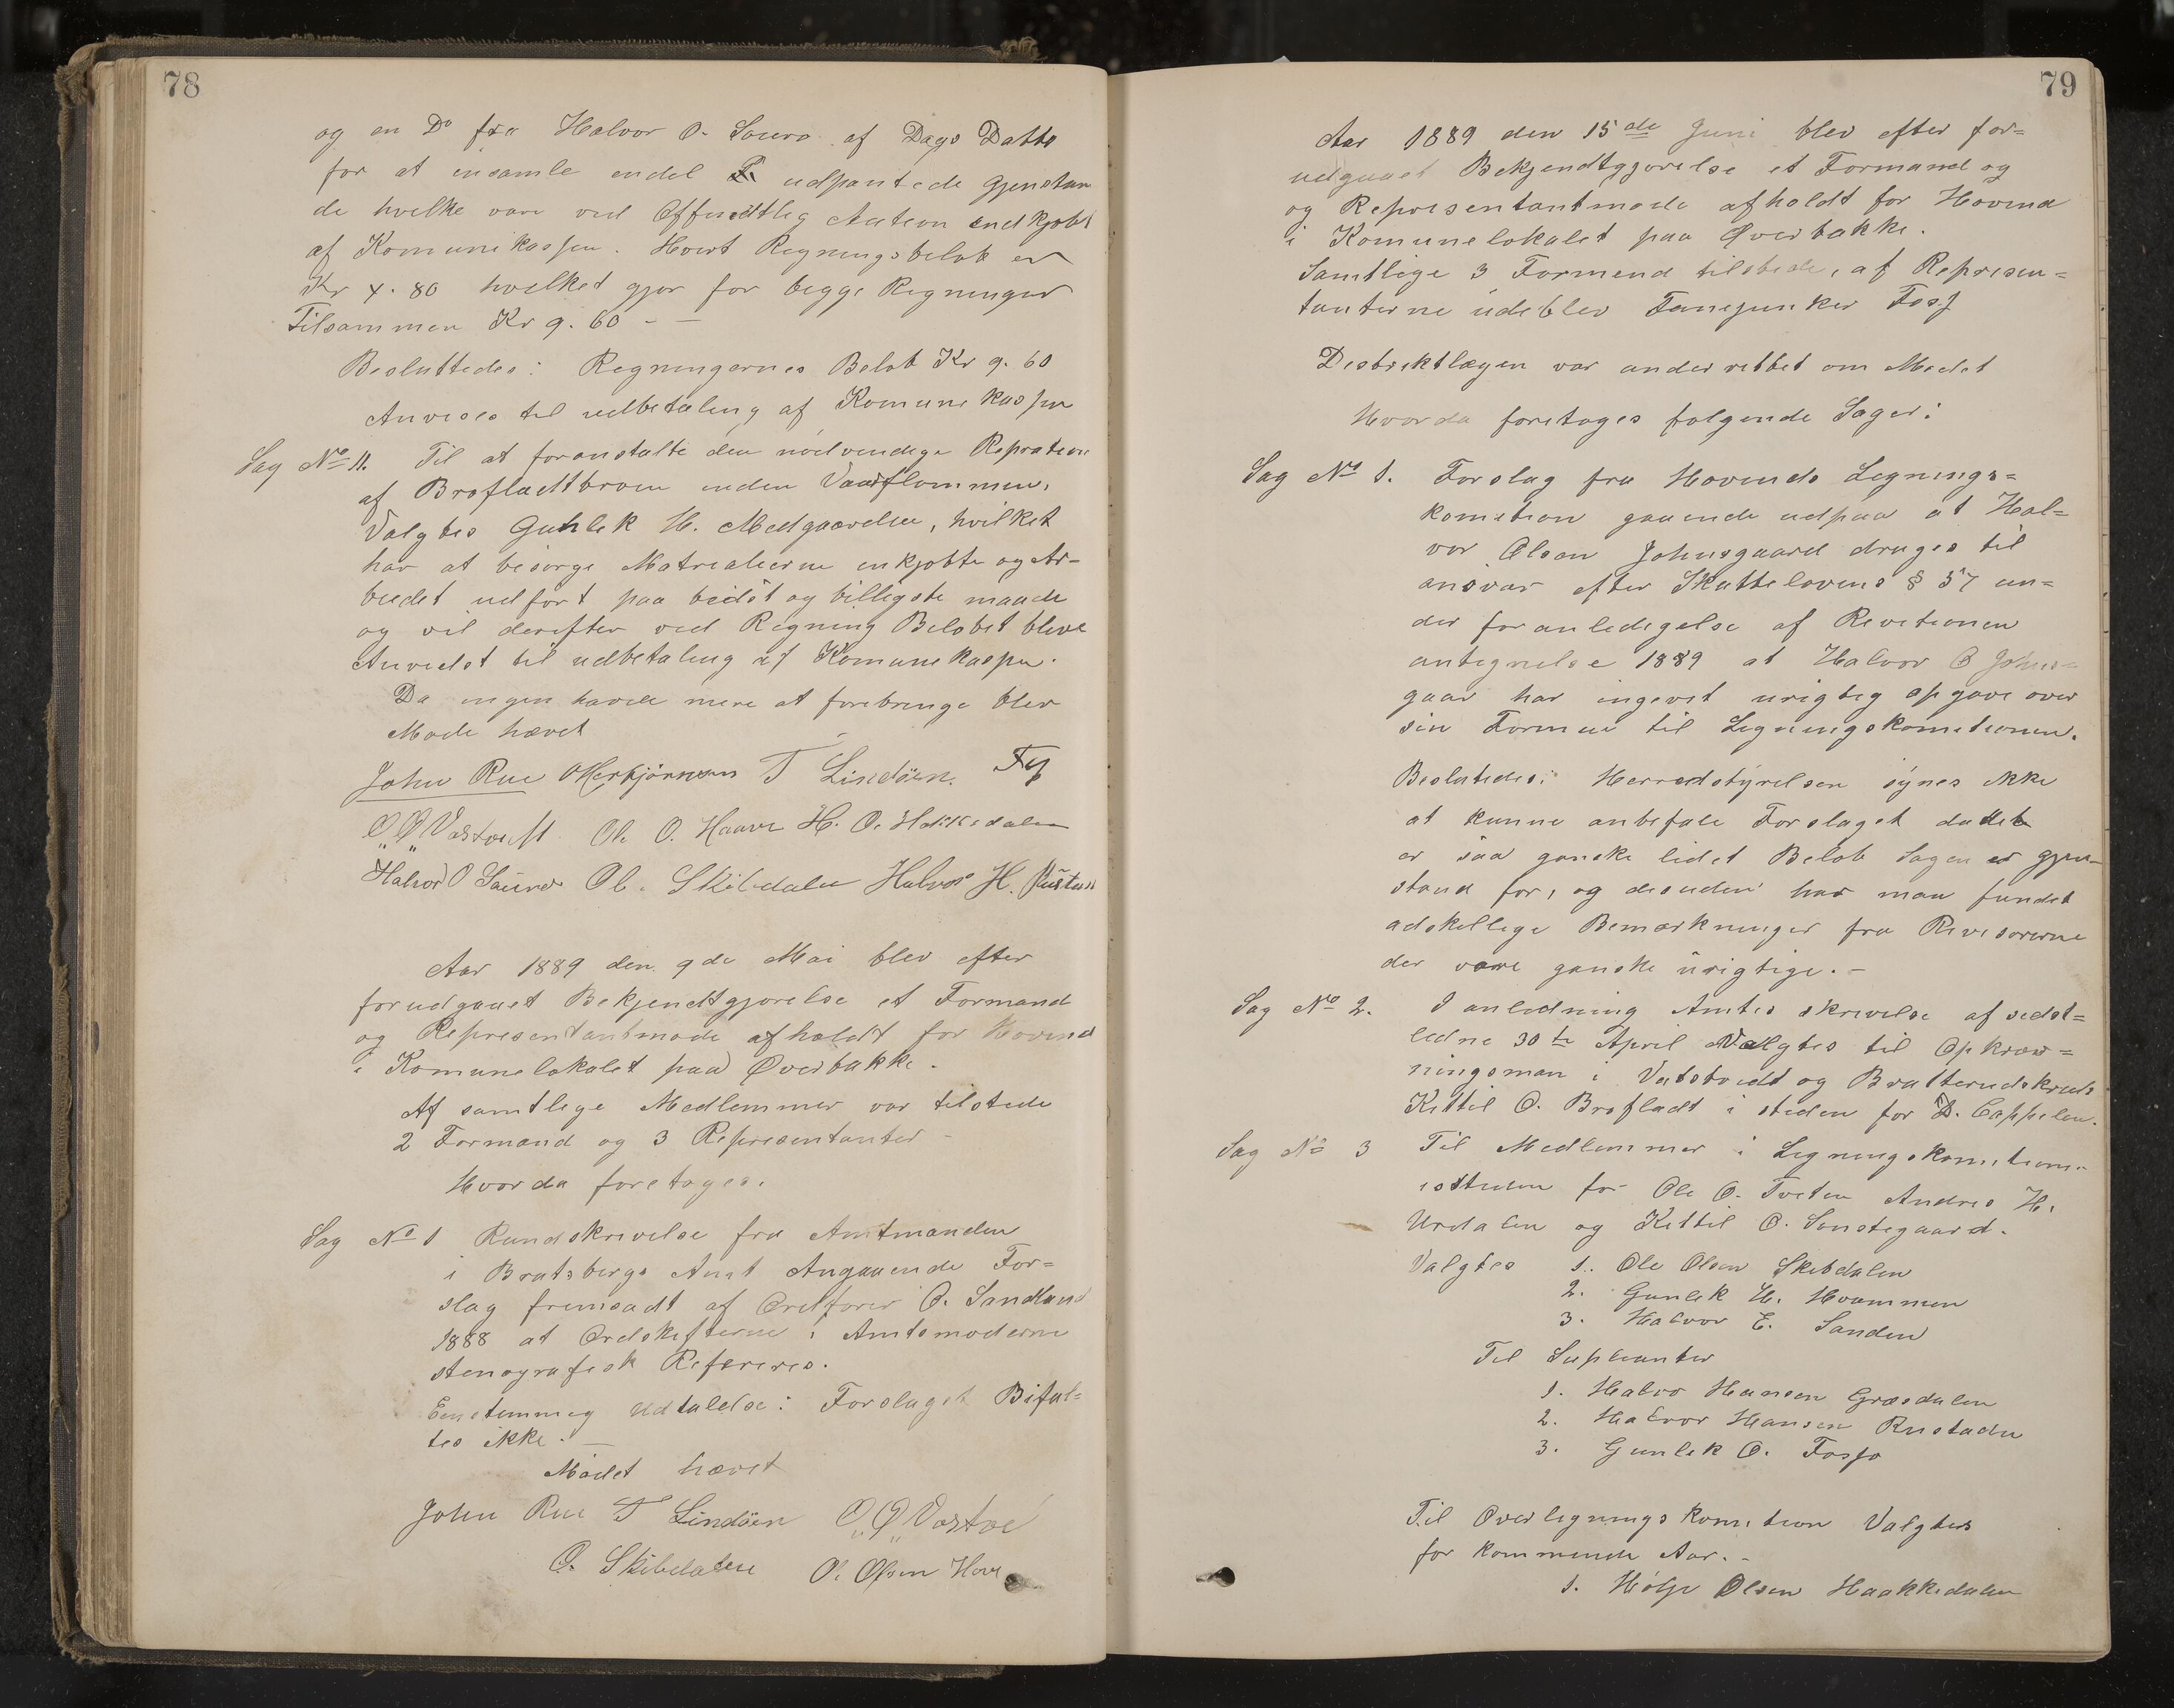 78
og en Do fra Halvor O. Saura af Dags Datto
for at insamle endel udpantede Gjenstan
de hvelke vare ved Offendtleg Auction indkjøbt
af Komunekassen. Hvert Regningsbeløb er
Kr 4.80 hvelket gjør for begge Regninger
Tilsammen Kr 9.60 - —
Besluttedes: Regningernes Beløb Kr 9.60
Anvises til udbetaling af Komunekassen
Sag No 11. Til at foranstalte den nödvendige Repration
af Brofladtbroen inden Vaarflommen.
Valgtes Gunlek H. Medgaarden, hvilket
har at besörge Matrealierne inkjøbte og Ar-
beidet udført paa beidst og billigste maade
og vil derefter ved Regning Beløbet blive
Anvedst til udbetaling af Komunekassen.
Da ingen havde mere at forebringe blev
Møde hævet
John Rue T Lindöen.
Ole O. Haave H. O. Hakkedalen
Halvor O Saura Ol. Skibdalen Halvor H. Rustad
Aar 1889 den 9de Mai blev efter
forudgaaet Bekjendtgjørelse et Formand
og Represendtantmøde afholdt for Hovind
i Komunelokalet paa Øverbakke.
Af samtlige Medlemmer var tilstede
2 Formænd og 3 Represendtanter -
Hvorda foretoges.
Sag No 1 Rundskrivelse fra Amtmanden
i Bratsbergs Amt Angaaende For=
slag fremsadt af Ordfører O. Sandland
1888 at Ordskifterne i Amtsmøderne
stenografisk Refereres.
Eenstemmig Udtalelse: Forslaget Bifal=
tes ikke. —
Mödet hævet
John Rue T Lindöen
O. Skibdalen Ol Olsen Hove
79
Aar 1889 den 15de Juni blev efter for=
udgaaet Bekjendtgjørelse et Formand og
og Represendtantmøde afholdt for Hovind
i Komunelokalet paa Øverbakke.
Samtlige 3 Formend tilstede, af Represen=
tanterne udeblev Fanejunker Foss
Destriktlægen var underrettet om Mødet
Hvorda foretoges følgende Sager:
Sag No 1. Forslag fra Hovinds Legnings=
komition gaaende udpaa at Hal=
vor Olsen Johnsgaard drages til
ansvar efter Skattelovens § 57 un=
der foranledigelse af Revitionen
antegnelse 1889 at Halvor O Johns=
gaar har ingevet urigtig opgave over
sin Formue til Legningskomitionen.
Beslutedes: Herredstyrelsen synes ikke
at kunne anbefale Forslaget da det
er saa ganske lidet Beløb Sagen er gjen-
stand for, og desuden har man fundet
adskellige Bemærkninger fra Revisorerne
der være ganske urigtige. -
Sag No 2. I anledning Amtes skrivelse af sedst=
ledne 30te April Valgtes til Opkræv=
ningsman i Vatsbredt og Bratterudskreds
Kittil O. Brofladt i steden for D. Cappelen.
Sag No 3 Til Medlemmer i Legningskomitionen
isteden for Ole O. Tveten Andres H.
Urdalen og Kittil O. Sønstegaard.
Valgtes 1. Ole Olsen Skibdalen
2. Gunlek H. Hvammen
3. Halvor E. Sanden
Til Supleanter
1. Halvo Hansen Græsdalen
2. Halvor Hansen Rustaden
3. Gunlek O. Fosso
Til Overlegningskomition Valgtes
for kommende Aar. -
1. Hölje Olsen Haakkedalen